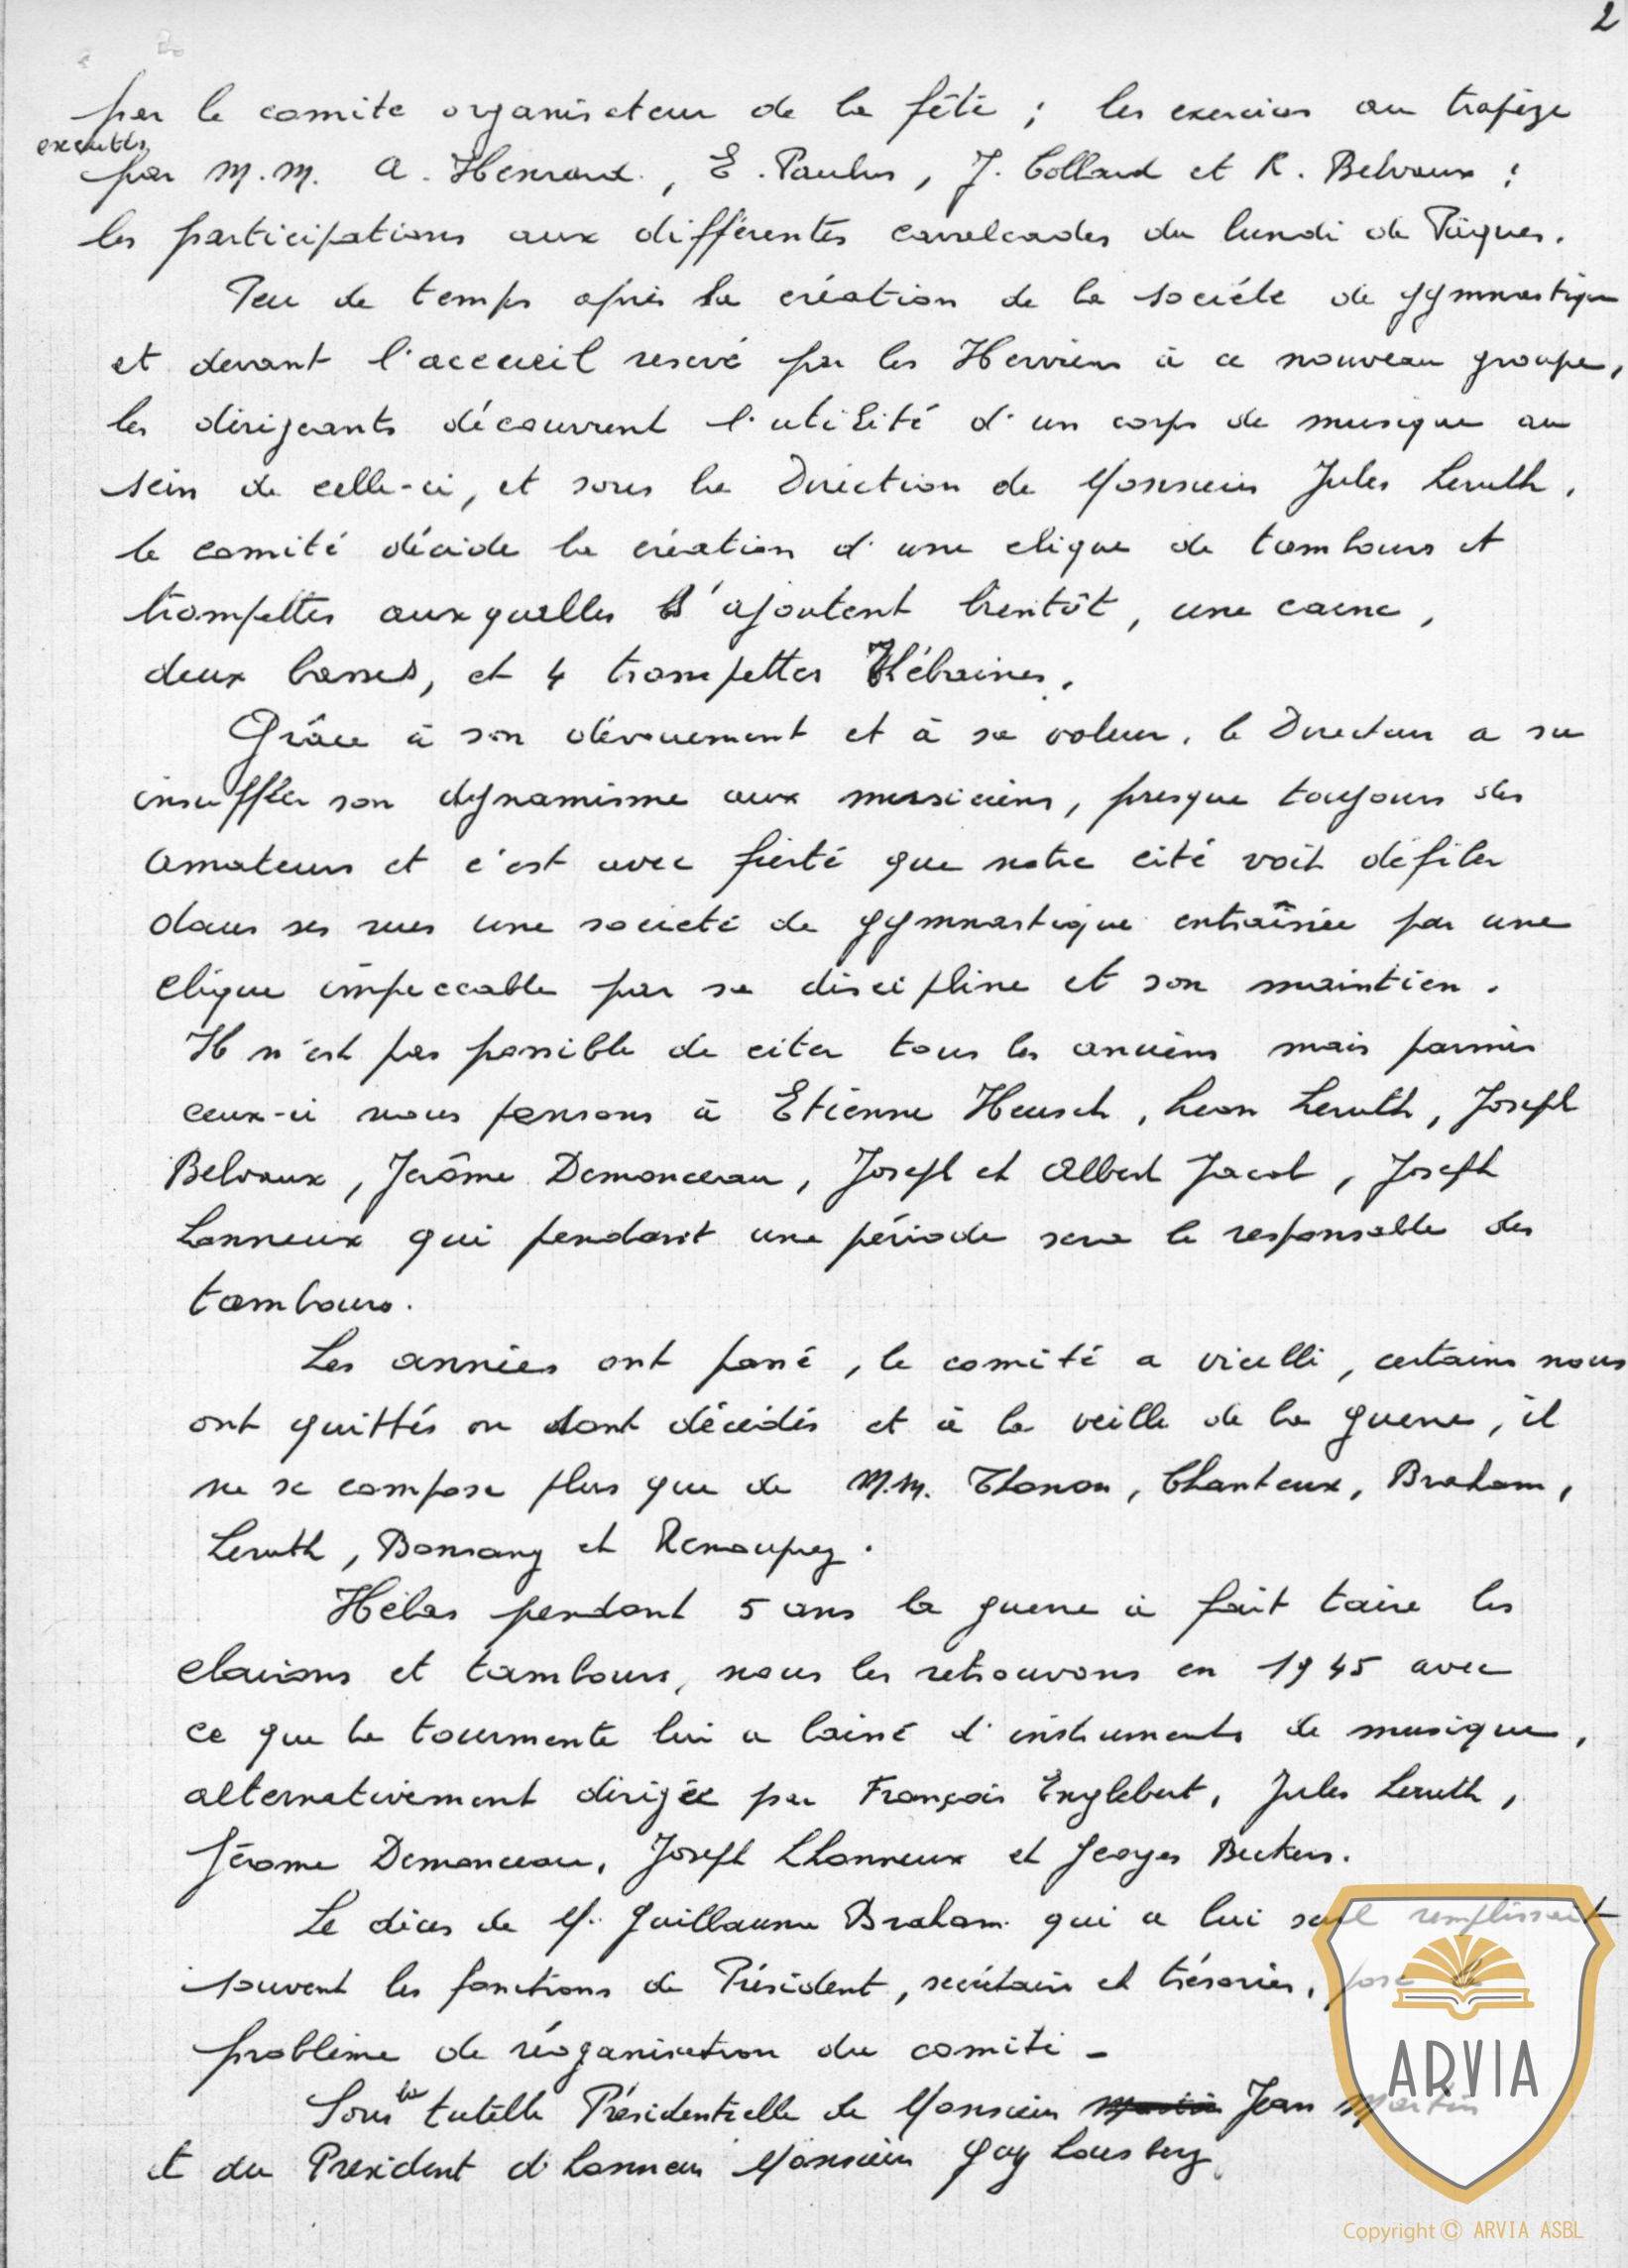 2
par le comité organisateur de la fête ; les exercices au trapèze
executés
par M.M. A. Henrard, E. Paulus, J. Collard et R. Belvaux ;
les participations aux différentes cavalcades du lundi de Pâques.
Peu de temps après la création de la sociéte de gymnastique
et devant l'acceuil reservé par les Herviens à ce nouveau groupe,
les dirigeants découvrent l'utilité d'un corps de musique au
sein de celle-ci, et sous la Direction de Monsieur Jules Leruth,
le comité décide la création d'une clique de tambours et
trompettes auxquelles s'ajoutent bientôt, une caisse,
deux basses, et 4 trompettes Thébaines.
Grâce à son dévouement et à sa valeur, le Directeur a su
insuffler son dynamisme aux musiciens, presque toujours des
amateurs et c'est avec fierté que notre cité voit défiler
dans ses rues une societé de gymnastique entraînée par une
clique impeccable par sa discipline et son maintien.
Il n'est pas possible de citer tous les anciens mais parmis
ceux-ci nous pensons à Etienne Heusch, Leon Leruth, Joseph
Belvaux, Jerôme Demonceau, Joseph et Albert Jacob, Joseph
Lonneux qui pendant une période sera le responsable des
tambours.
Les années ont passé, le comité a vieilli, certains nous
ont quittés ou sont décédés et à la veille de la guerre, il
ne se compose plus que de M.M. Thonon, Chanteux, Braham,
Leruth, Bonsang et Renouprez.
Hélas pendant 5 ans la guerre à fait taire les
clairons et tambours, nous les retrouvons en 1945 avec
ce que la tourmente lui a laissé d'instruments de musique,
alternativement dirigée par François Englebert, Jules Leruth,
Jérome Demonceau, Joseph Lhonneux et Georges Beckers.
Le décès de M. Guillaume Braham qui a lui seul remplissait
souvent les fonctions de Président, secrétaire et trésorier, pose le
problème de réoganisation du comité -
Sous la tutelle Présidentielle de Monsieur Jean Martin
et du President d'honneur Monsieur Guy Lousberg.
ARVIA
Copyright © ARVIA ASBL